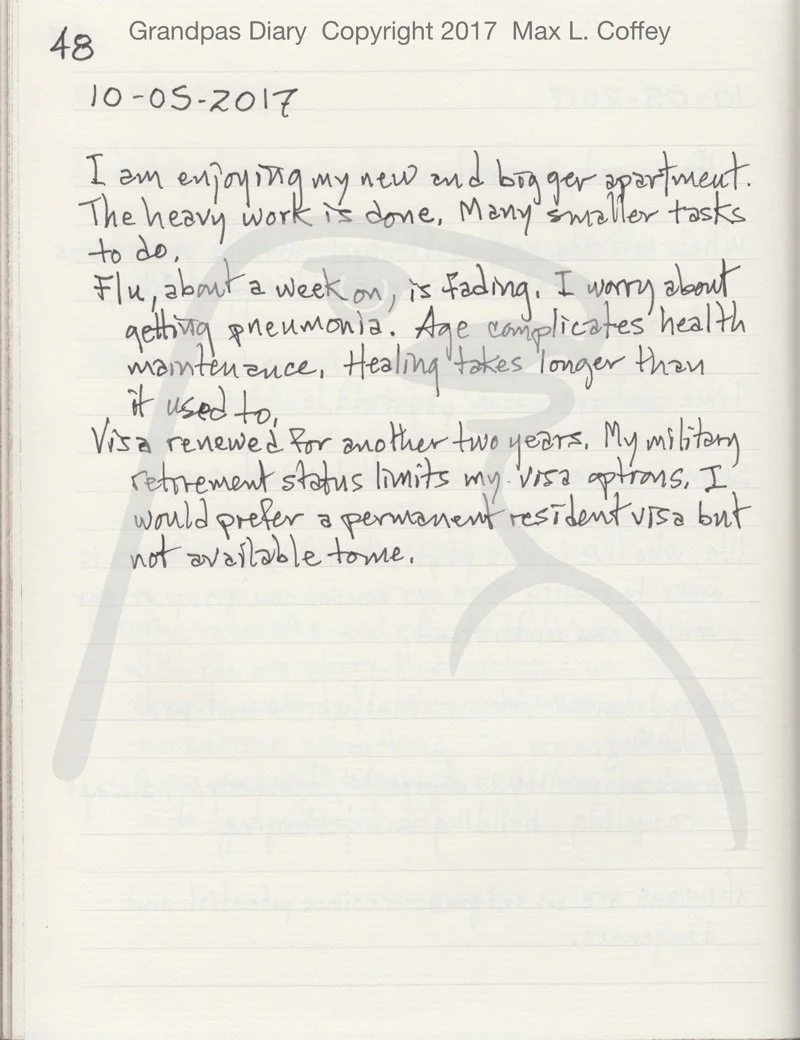 Grandpas Diary Copyright 2017 Max L. Coffey
48
10-05-2017
I am enjoying my new and bigger apartment.
The heavy work is done. Many smaller tasks
to do.
Flu, about a week on, is fading. I worry about
getting pneumonia. Age complicates health
maintenance. Healing takes longer than
it used to.
Visa renewed for another two years. My military
retirement status limits my visa options. I
would prefer a permanent resident visa but
not available to me.